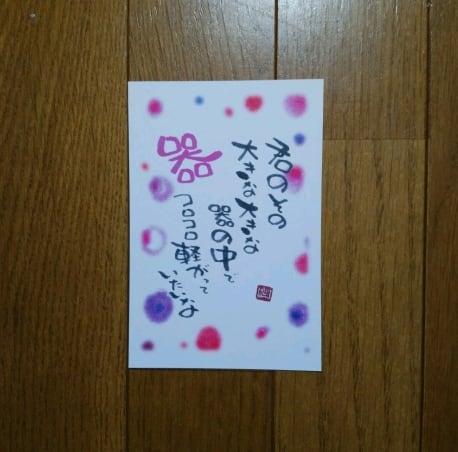 君のその
大きな大きな
器の中で
コロコロ転がって
いたいな
器